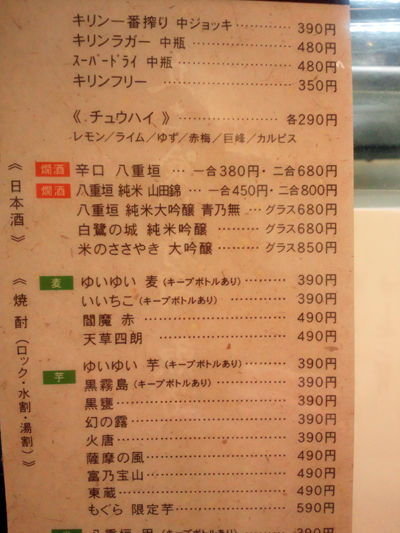 キリン一番搾り 中ジョッキ ………… 390円
キリンラガー 中瓶 ………… 480円
スーパードライ 中瓶 ………… 480円
キリンフリー ………… 350円
《 チュウハイ 》 ………… 各290円
レモン／ライム／ゆず／赤梅／巨峰／カルピス
《日本酒》
燗酒 辛口 八重垣 … 一合380円・二合680円
燗酒 八重垣 純米 山田錦 … 一合450円・二合800円
八重垣 純米大吟醸 青乃無 … グラス680円
白鷺の城 純米吟醸 ………… グラス680円
米のささやき 大吟醸 ……… グラス850円
《焼酎（ロック・水割・湯割）》
麦 ゆいゆい 麦（キープボトルあり） ……… 390円
いいちこ（キープボトルあり） ……… 390円
閻魔 赤 ………… 490円
天草四朗 ………… 490円
芋 ゆいゆい 芋（キープボトルあり） ……… 390円
黒霧島（キープボトルあり） ……… 390円
黒甕 ………… 390円
幻の露 ………… 390円
火唐 ………… 390円
薩摩の風 ………… 490円
富乃宝山 ………… 490円
東蔵 ………… 490円
もぐら 限定芋 ………… 590円